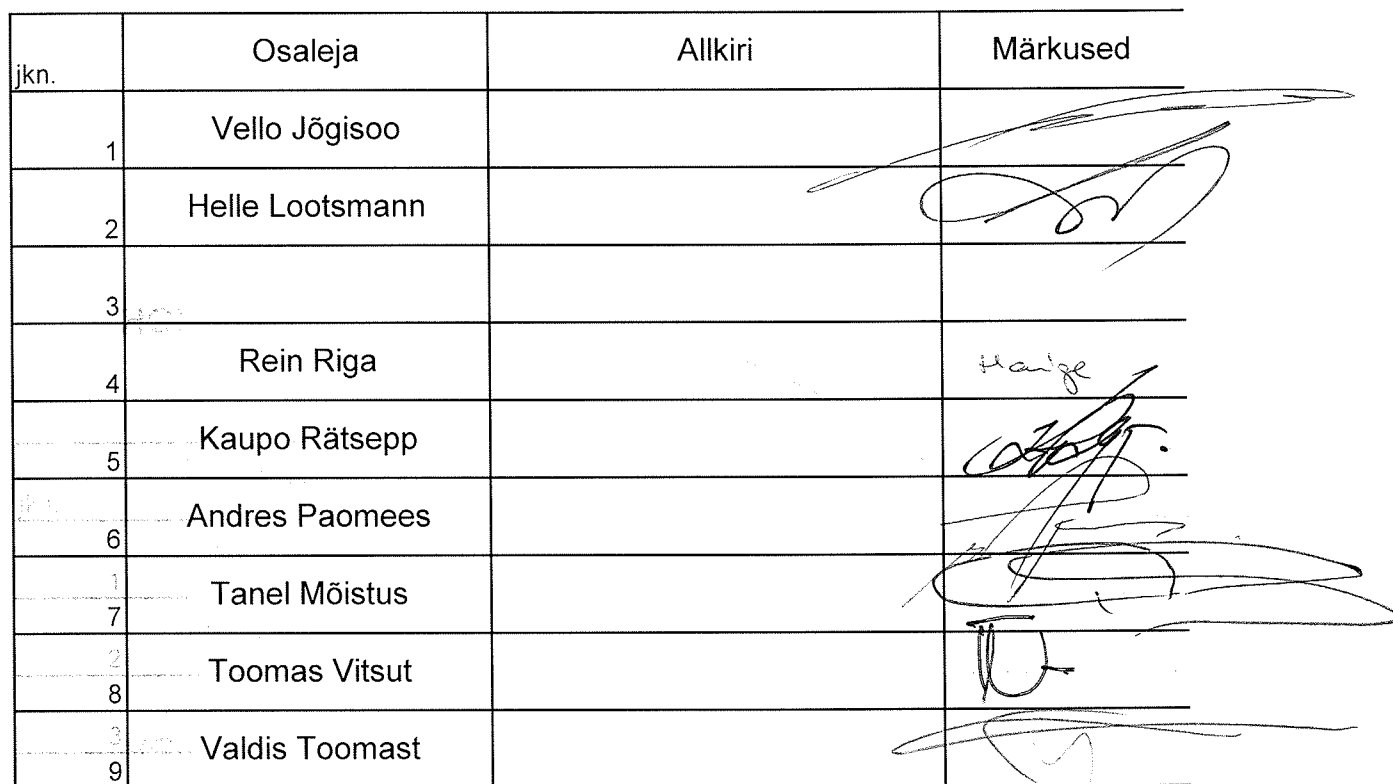 jkn. Osaleja Allkiri Märkused
1 Vello Jõgisoo
2 Helle Lootsmann
3
4 Rein Riga Haige
5 Kaupo Rätsepp
6 Andres Paomees
7 Tanel Mõistus
8 Toomas Vitsut
9 Valdis Toomast